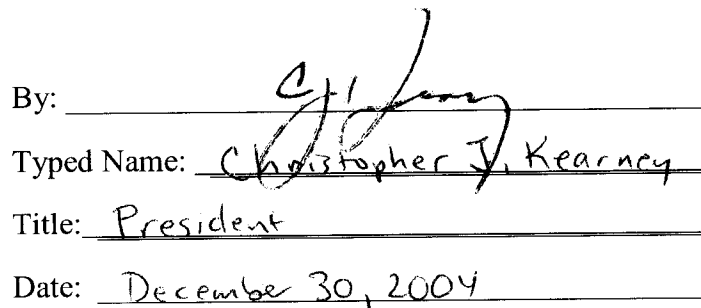 By:
Typed Name: Christopher J. Kearney
Title: President
Date: December 30, 2004